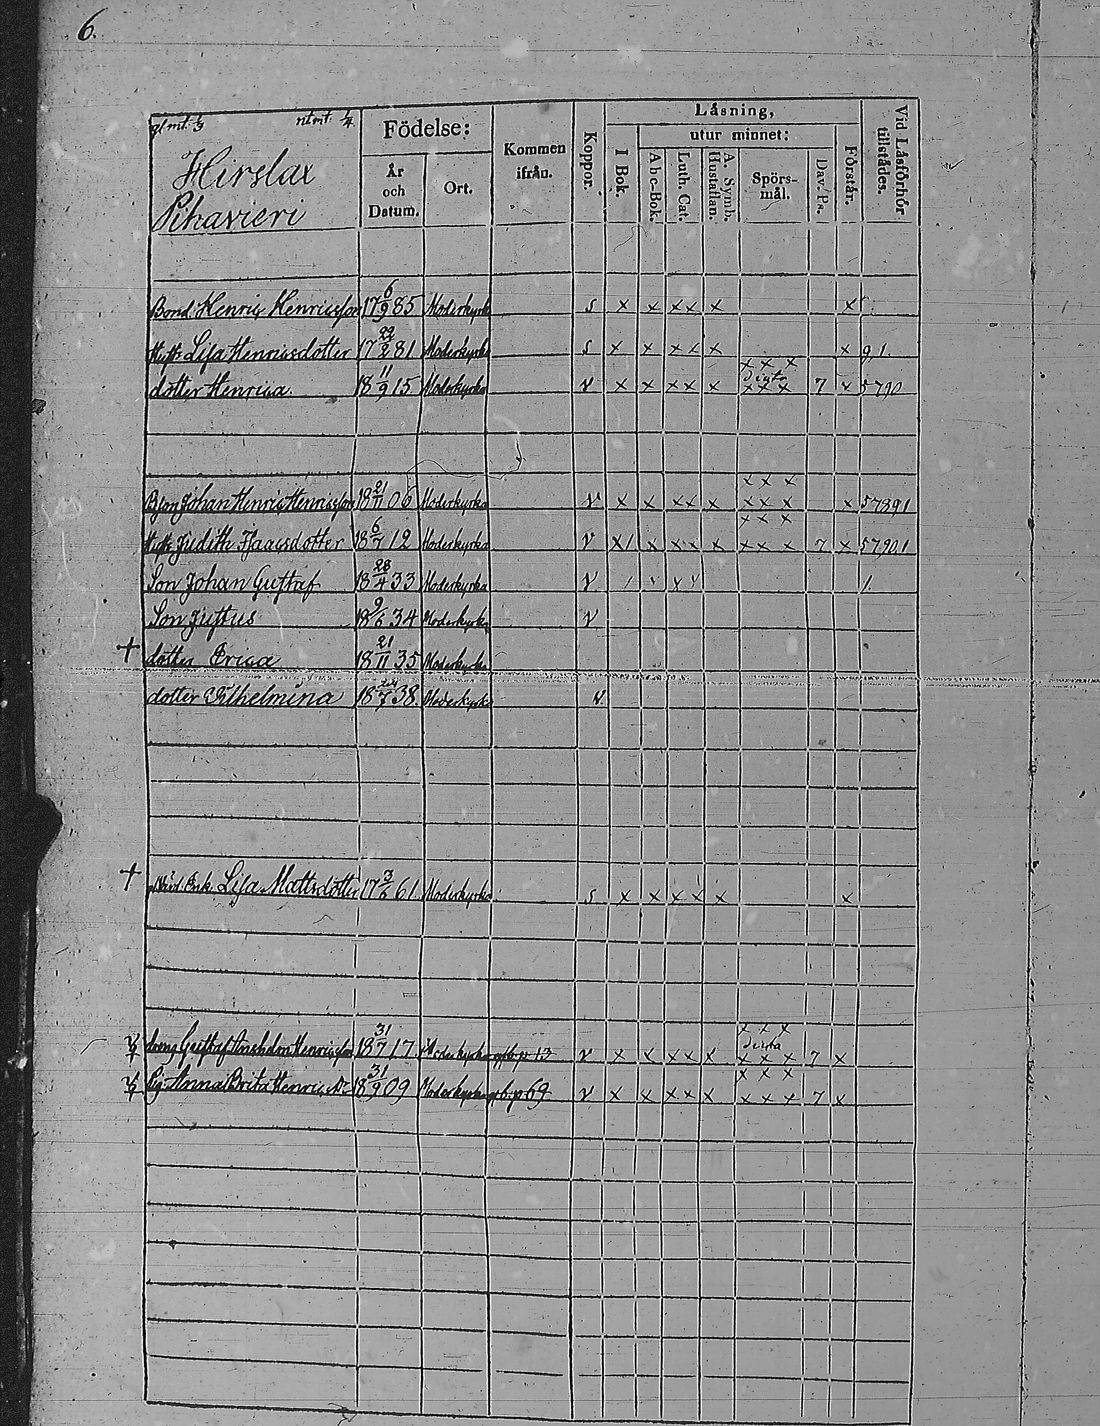 6.
glmt. 1/3 ntmt. 1/4
Hirslax
Pihavieri
Födelse:
År och Datum.
Ort.
Kommen ifrån.
Koppor.
Läsning,
I Bok.
utur minnet:
Abc-Bok.
Luth. Cat.
A. Symb. Hustaflan.
Spörsmål.
Dav. Ps.
Förstår.
Vid Läsförhör tillstädes.
Bond Henric Henricsson 17 6/9 85 Moderkyrka s x x xx x x
Hust. Lisa Henricsdotter 17 22/2 81 Moderkyrka s x x xx x x 91.
dotter Henrica. 18 11/9 15 Moderkyrka v x x xx x xxx xxx 7 x 5790
Bson Johan Henric Henricsson 18 21/11 06 Moderkyrka v x x xx x xxx xxx x 57891
Hust. Judith Isaacsdotter 18 6/7 12 Moderkyrka v x x xx x xxx xxx 7 x 57901
Son Johan Gustaf 18 28/4 33 Moderkyrka v 1.
Son Justus 18 9/6 34 Moderkyrka v
+ dotter Erica 18 21/11 35 Moderkyrka
dotter Wilhelmina 18 /7 38. Moderkyrka v.
+ Enk. Lisa Mattsdotter 17 3/6 61. Moderkyrka s x x xx x x
dreng Gustaf Henricsson 18 31/7 17 Moderkyrka p 13 v x x xx x xxx xxx 7 x
Pig. Anna Brita Henrics Dr 18 31/9 09 Moderkyrka p 69 v x x xx x xxx xxx 7 x